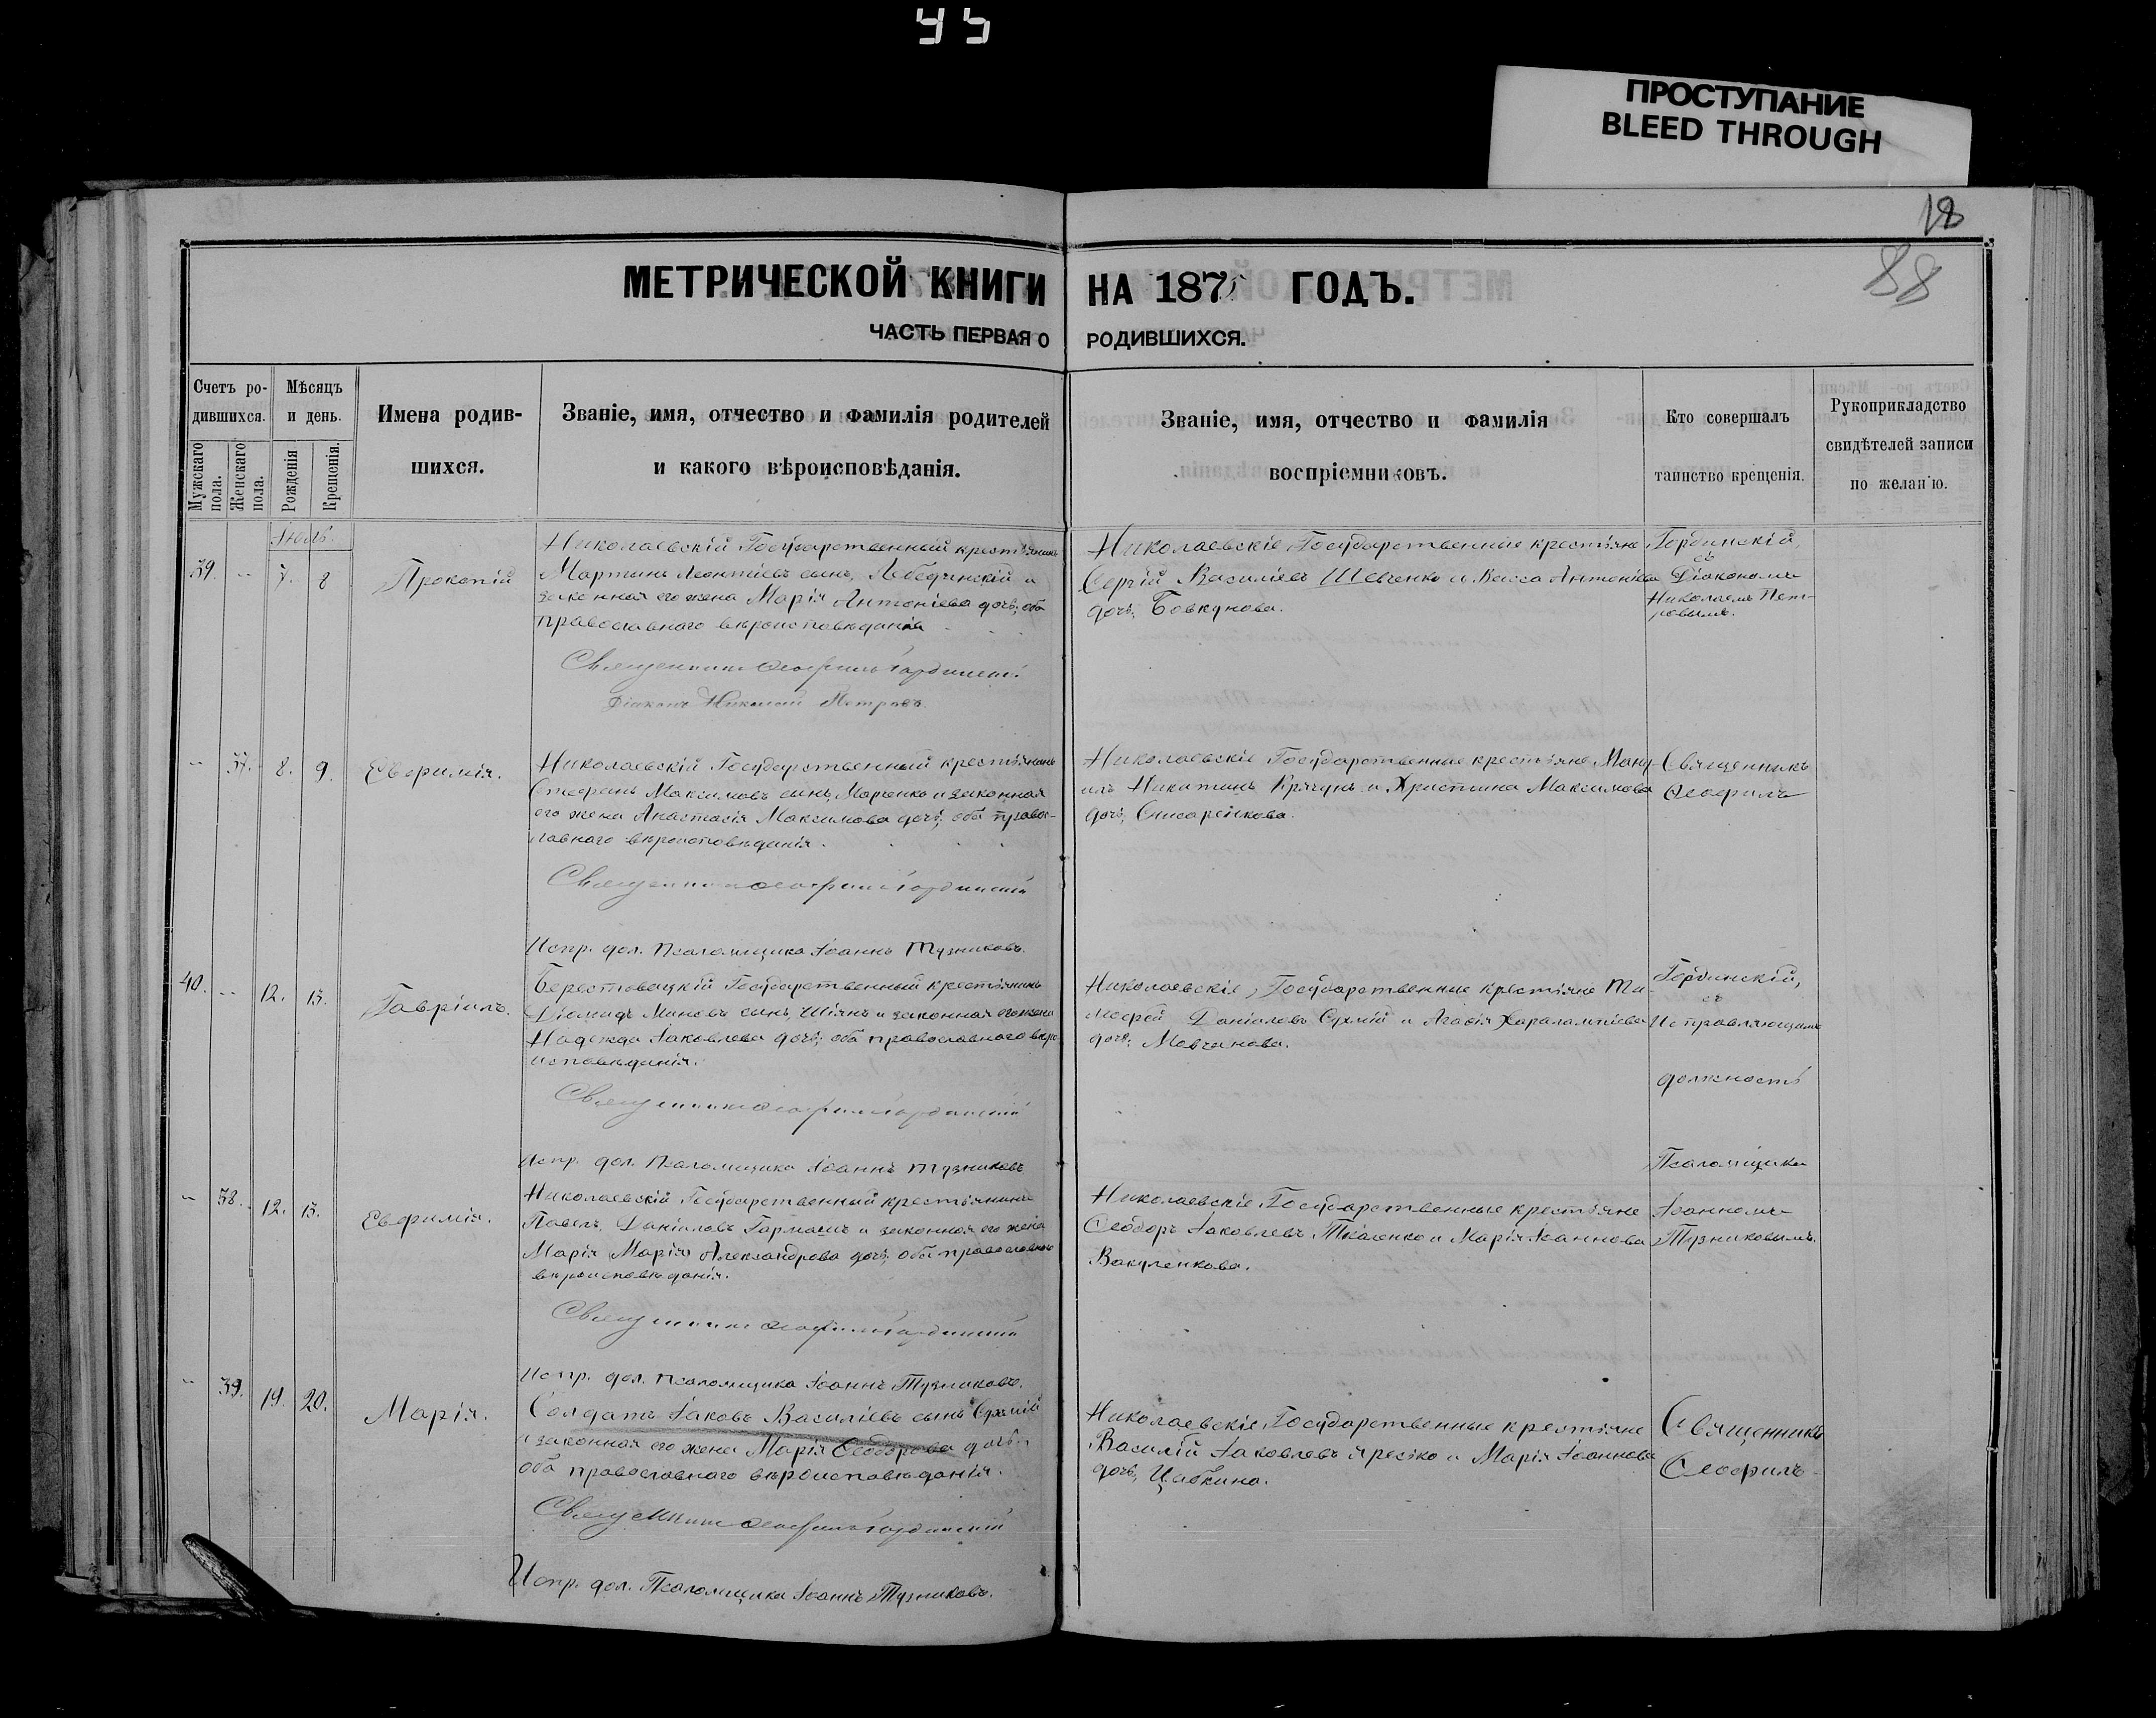 45
ПРОСТУПАНИЕ
BLEED THROUGH
18
88
МЕТРИЧЕСКОЙ КНИГИ НА 187 ГОДЪ.
ЧАСТЬ ПЕРВАЯ О РОДИВШИХСЯ.
Счетъ ро-
дившихся.
Мужскаго пола.
Женскаго пола.
Мѣсяцъ
и день.
Рожденія
Крещенія.
Имена родив-
шихся.
Званіе, имя, отчество и фамилія родителей
и какого вѣроисповѣданія.
Званіе, имя, отчество и фамилія
воспріемниковъ.
Кто совершалъ
таинство крещенія.
Рукоприкладство
свидѣтелей записи
по желанію.
Іюль.
39. 7. 8 Прокопій
Николаевскій Государственный крестьянинъ
Мартинъ Леонтіевъ сынъ, Лебединскій и
законная его жена Марія Антоніева дочь, оба
православнаго вѣроисповѣданія
Священникъ Ѳеофилъ Гординскій
Діаконъ Николай Петровъ
Николаевскіе Государственные крестьяне
Сергій Василіевъ Шевченко и Васса Антоніева
дочь, Бовкунова.
Гординскій,
съ
Діакономъ
Николаемъ Пет-
ровымъ.
37. 8. 9. Евфимія.
Николаевскій Государственный крестьянинъ
Стефанъ Максимовъ сынъ, Марченко и законная
его жена Анастасія Максимова дочь, оба правос-
лавнаго вѣроисповѣданія.
Священникъ Ѳеофилъ Гординскій
Испр. дол. Псаломщика Іоаннъ Тузниковъ.
Николаевскіе Государственные крестьяне Ману-
илъ Никитинъ Крячунъ и Христина Максимова
дочь,
Священникъ
Ѳеофилъ
40. 12. 13. Гавріилъ.
Берестовецкій Государственный крестьянинъ
Діомидъ Миновъ сынъ, Шіянъ и законная его жена
Надежда Іаковлева дочь, оба православнаго вѣро-
исповѣданія.
Священникъ Ѳеофилъ Гординскій
Испр. дол. Псаломщика Іоаннъ Тузниковъ
Николаевскіе, Государственные крестьяне Ти-
мофей Даніиловъ Сухмій и Агафія Харалампіева
дочь, Мовчанова.
Гординскій,
съ
Исправляющимъ
должность
Псаломщика
38. 12. 13. Евфимія.
Николаевскій Государственный крестьянинъ
Павелъ Даніиловъ Гармашъ и законная его жена
Марія Марія Александрова дочь, оба православнаго
вѣроисповѣданія.
Священникъ Ѳеофилъ Гординскій
Испр. дол. Псаломщика Іоаннъ Тузниковъ.
Николаевскіе Государственные крестьяне
Ѳеодоръ Іаковлевъ Ткаченко и Марія Іоаннова
Вакуленкова.
Іоанномъ
Тузниковымъ.
39. 19. 20. Марія.
Солдатъ Іаковъ Василіевъ сынъ
и законная его жена Марія Ѳеодорова дочь,
оба православнаго вѣроисповѣданія.
Священникъ Ѳеофилъ Гординскій
Испр. дол. Псаломщика Іоаннъ Тузниковъ.
Николаевскіе Государственные крестьяне
Василій Іаковлевъ и Марія Іоаннова
дочь,
Священникъ
Ѳеофилъ